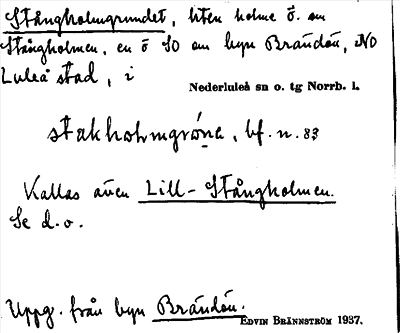 Stångholmgrundet, liten holme ö. om
Stångholmen, en ö SO om byn Brändön, NO
Luleå stad, i
Nederluleå sn o. tg Norrb. l.
stakholmgrøne, bf. n. 83
Kallas även Lill-Stångholmen.
Se d.o.
Uppg. från byn Brändön.
EDVIN BRÄNNSTRÖM 1937.